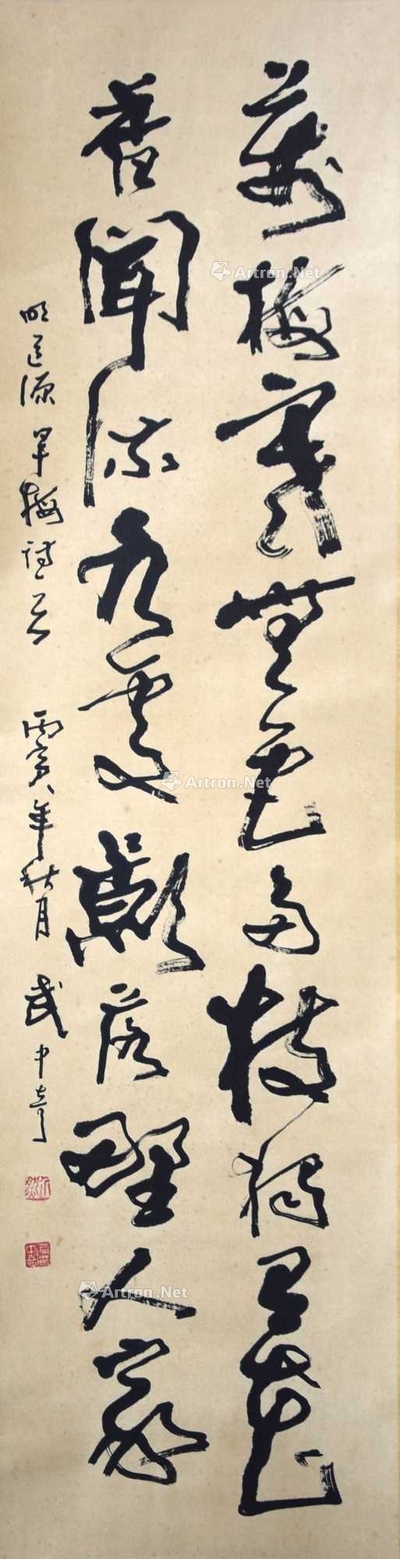 萬梅寒無色南枝獨有花
香聞流水處影落野人家
明道源早梅詩一首 丙寅年秋月 武中奇
Artron.Net
Artron.Net
Artron.Net